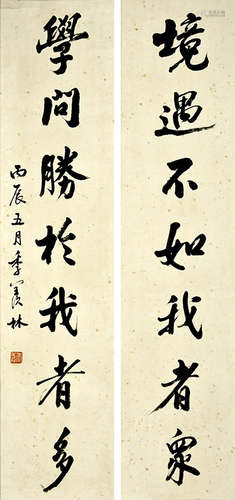 境遇不如我者眾
學問勝於我者多
丙辰五月季羨林